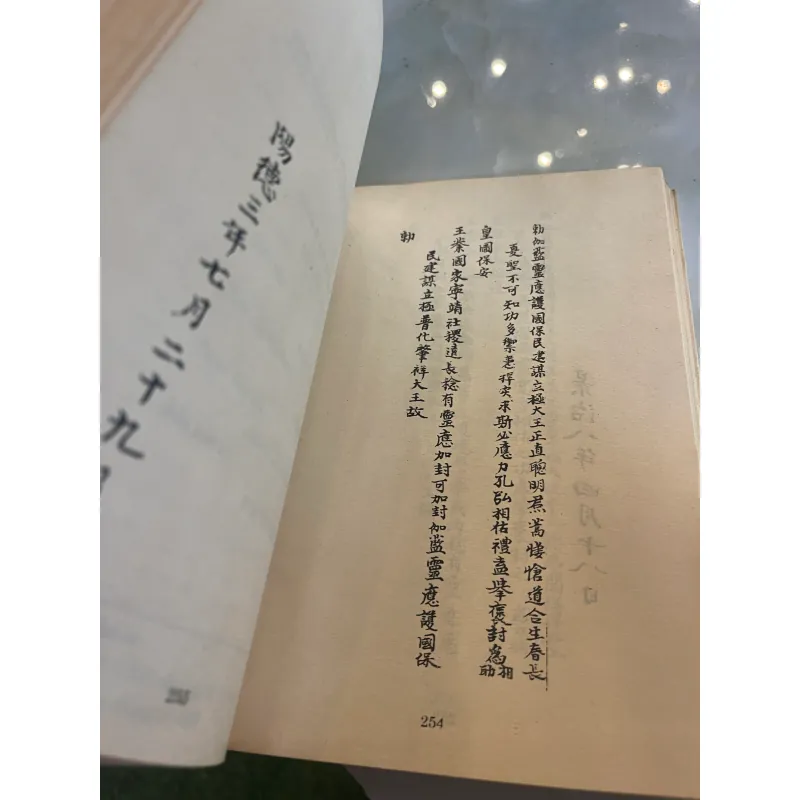 勅伽藍靈應護國保民建謀立極大王正直聰明焄蒿悽愴道合生春長
夏聖不可知功多禦患稈实求斯必應力孔弘相祜禮盍舉褒封為相助
皇圖保安
王業國家寧靖社稷遠長稔有靈應加封可加封伽藍靈應護國保
民建謀立極普化肇祥大王故
勅
陽德三年七月二十九日
景治八年四月十八日
254
253